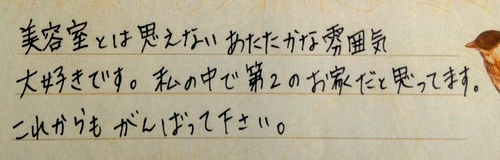 美容室とは思えないあたたかな雰囲気
大好きです。私の中で第2のお家だと思ってます。
これからもがんばって下さい。